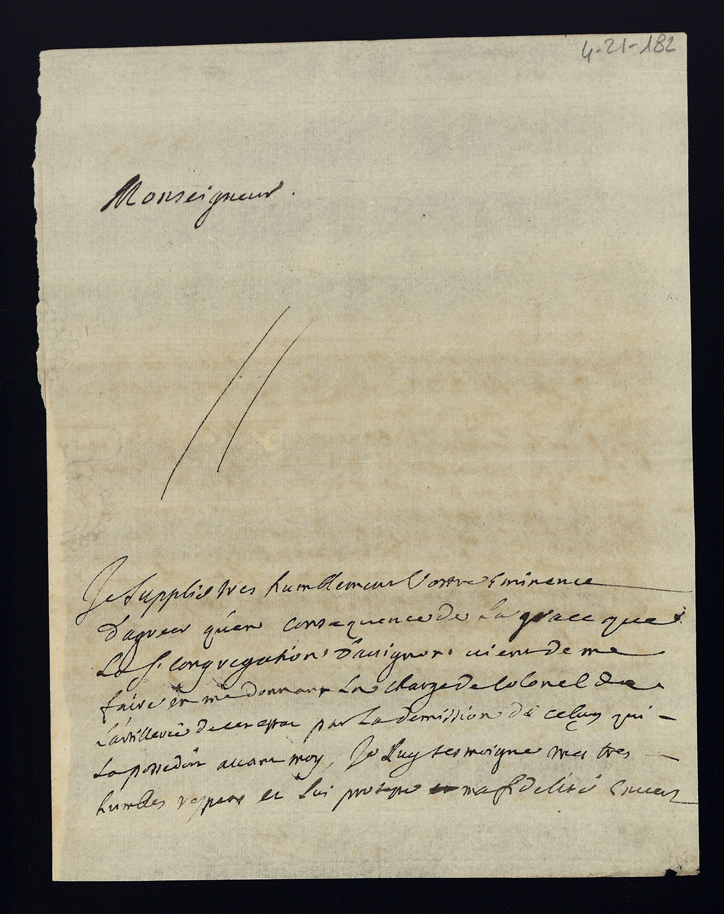 4-21-182
Monseigneur.
Je Supplie tres humblement Vostre Eminence
d'agreer qu'en consequence de la grace que
La S. Congregation d'avignon vient de me
faire en me donnant La charge de Colonel de
L'artillerie de cet estat par La demission de celuy qui
La possedoit avant moy, Je Luy tesmoigne mes tres
humbles respects et lui proteste ma fidelité Envers